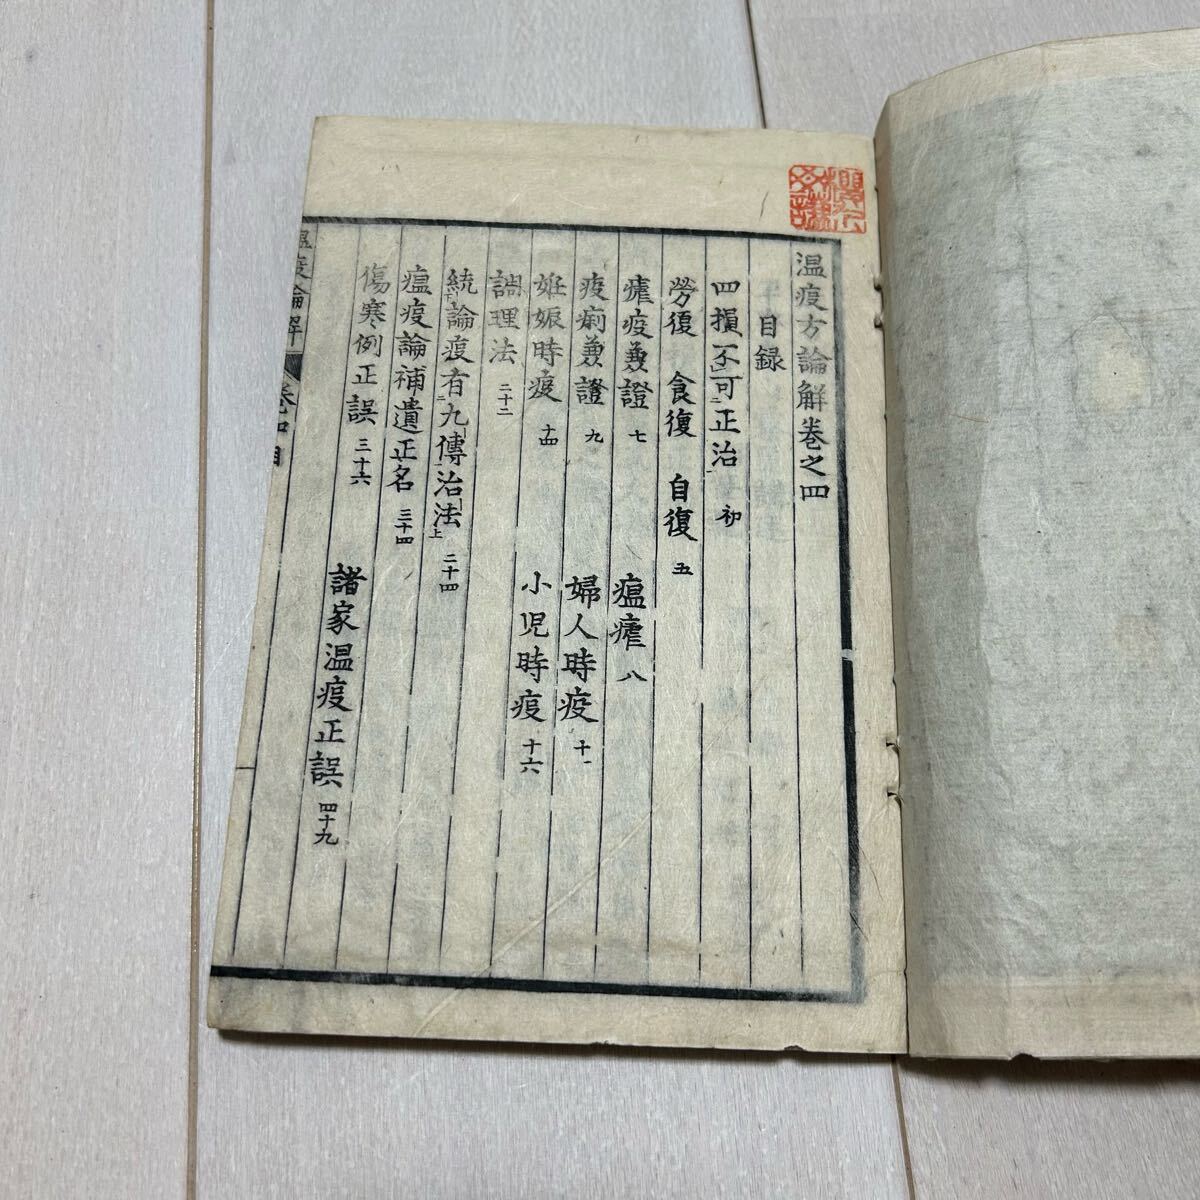 温疫方論解巻之四
目録
四損不可正治 初
勞復 食復 自復 五
瘧疫兼證 七 瘟瘧 八
疫痢兼證 九 婦人時疫 十一
妊娠時疫 十四 小児時疫 十六
調理法 二十二
統論疫有九傳治法 二十四
瘟疫論補遺正名 三十四
傷寒例正誤 三十六
諸家温疫正誤 四十九
温疫論解 巻四 目